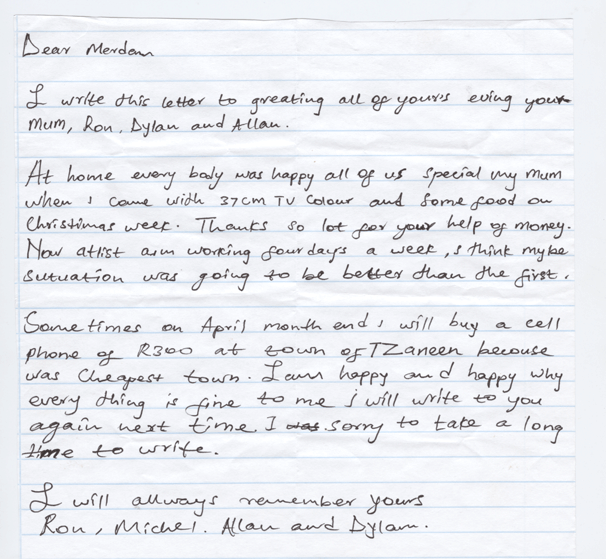 Dear Merdam
I write this letter to greating all of your's eving your
Mum, Ron, Dylan and Allan.
At home every body was happy all of us special my mum
when i came with 37cm TV Colour and some food on
Christimas week. Thanks so lot for your help of money.
Now atlist a:m working four days a week, i think mybe
sutuation was going to be better than the first.
Sometimes on April month end i will buy a cell
phone of R300 at town of TZaneen becouse
was Cheapest town. I am happy and happy why
every thing is fine to me i will write to you
again next time. I was sorry to take a long
time to write.
I will allways remember yours
Ron, Michel. Allan and Dylan.